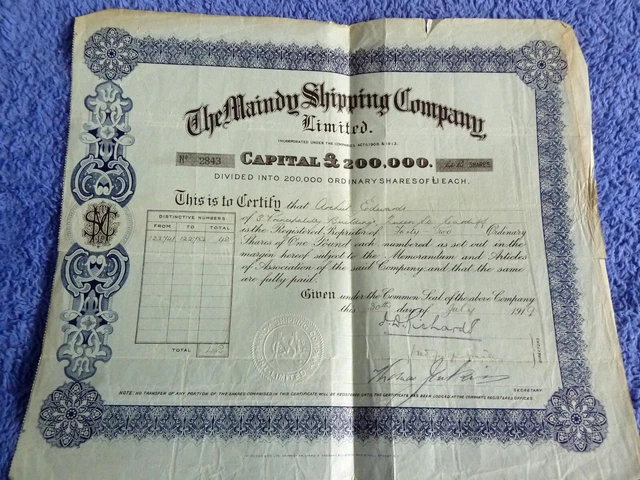 The Maindy Shipping Company,
Limited.
INCORPORATED UNDER THE COMPANIES ACTS 1908 & 1913.
No 2843 CAPITAL £200,000. SHARES
DIVIDED INTO 200,000 ORDINARY SHARES OF £1 EACH.
This is to Certify that Edwards
of Buildings Cardiff
is the Registered Proprietor of Forty Two Ordinary
Shares of One Pound each numbered as set out in the
margin hereof subject to the Memorandum and Articles
of Association of the said Company; and that the same
are fully paid.
DISTINCTIVE NUMBERS
FROM TO TOTAL
TOTAL
Given under the Common Seal of the above Company
this 30th day of July 191
Thomas Jenkins
DIRECTORS
SECRETARY
NOTE: NO TRANSFER OF ANY PORTION OF THE SHARES COMPRISED IN THIS CERTIFICATE WILL BE REGISTERED UNTIL THE CERTIFICATE HAS BEEN LODGED AT THE COMPANY'S REGISTERED OFFICES.